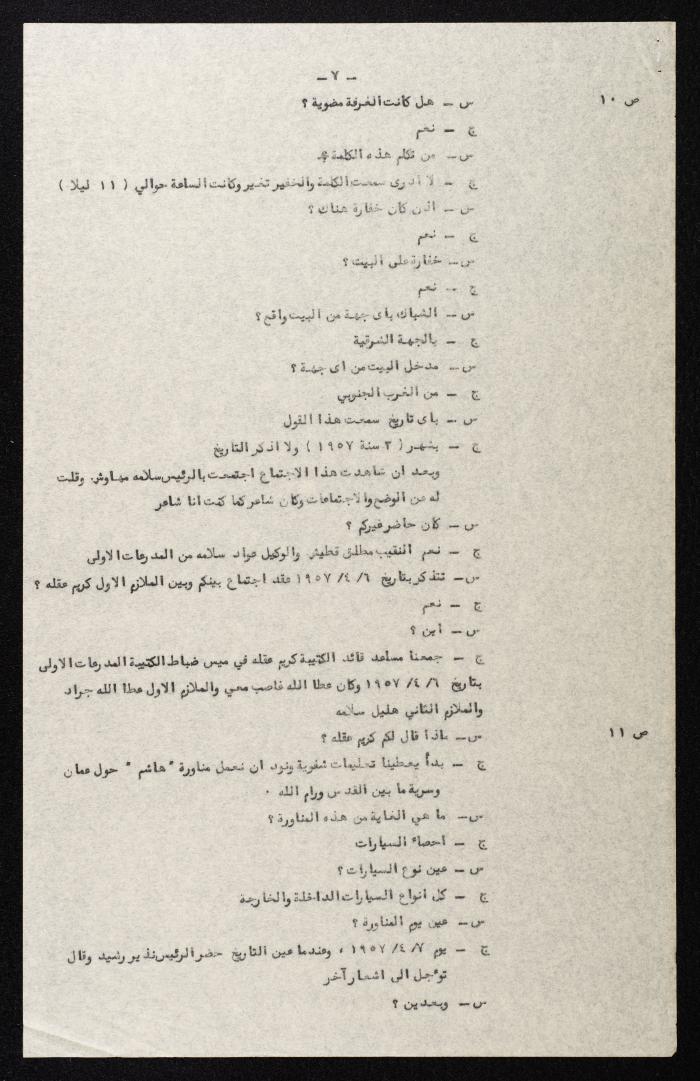 - ٧ -
ص ١٠
س - هل كانت الغرفة مضوية ؟
ج - نعم
س - من تكلم هذه الكلمة ؟
ج - لا ادرى سمعت الكلمة والخفير تغير وكانت الساعة حوالي ( ١١ ليلا )
س - اذن كان خفارة هناك ؟
ج - نعم
س - خفارة على البيت ؟
ج - نعم
س - الشباك باى جهة من البيت واقع ؟
ج - بالجهة الشرقية
س - مدخل البيت من اى جهة ؟
ج - من الغرب الجنوبي
س - باى تاريخ سمعت هذا القول
ج - بشهر ( ٣ سنة ١٩٥٧ ) ولا اذكر التاريخ
وبعد ان شاهدت هذا الاجتماع اجتمعت بالرئيس سلامه مهاوش وقلت
له عن الوضع والاجتماعات وكان شاعر كما كنت انا شاعر
س - كان حاضر غيركم ؟
ج - نعم النقيب مطلق قطيش والوكيل عواد سلامه من المدرعات الاولى
س - تتذكر بتاريخ ٦/ ٤/ ١٩٥٧ عقد اجتماع بينكم وبين الملازم الاول كريم عقله ؟
ج - نعم
س - أين ؟
ج - جمعنا مساعد قائد الكتيبة كريم عقله في ميس ضباط الكتيبة المدرعات الاولى
بتاريخ ٦/ ٤/ ١٩٥٧ وكان عطا الله غاصب معي والملازم الاول عطا الله جراد
والملازم الثاني هليل سلامه
ص ١١
س - ماذا قال لكم كريم عقله ؟
ج - بدأ يعطينا تعليمات شفوية ونود ان نعمل مناورة " هاشم " حول عمان
وسرية ما بين القدس ورام الله .
س - ما هي الغاية من هذه المناورة ؟
ج - احصاء السيارات
س - عين نوع السيارات ؟
ج - كل انواع السيارات الداخلة والخارجة
س - عين يوم المناورة ؟
ج - يوم ٧/ ٤/ ١٩٥٧ ، وعندما عين التاريخ حضر الرئيس نذير رشيد وقال
تؤجل الى اشعار آخر
س - وبعدين ؟